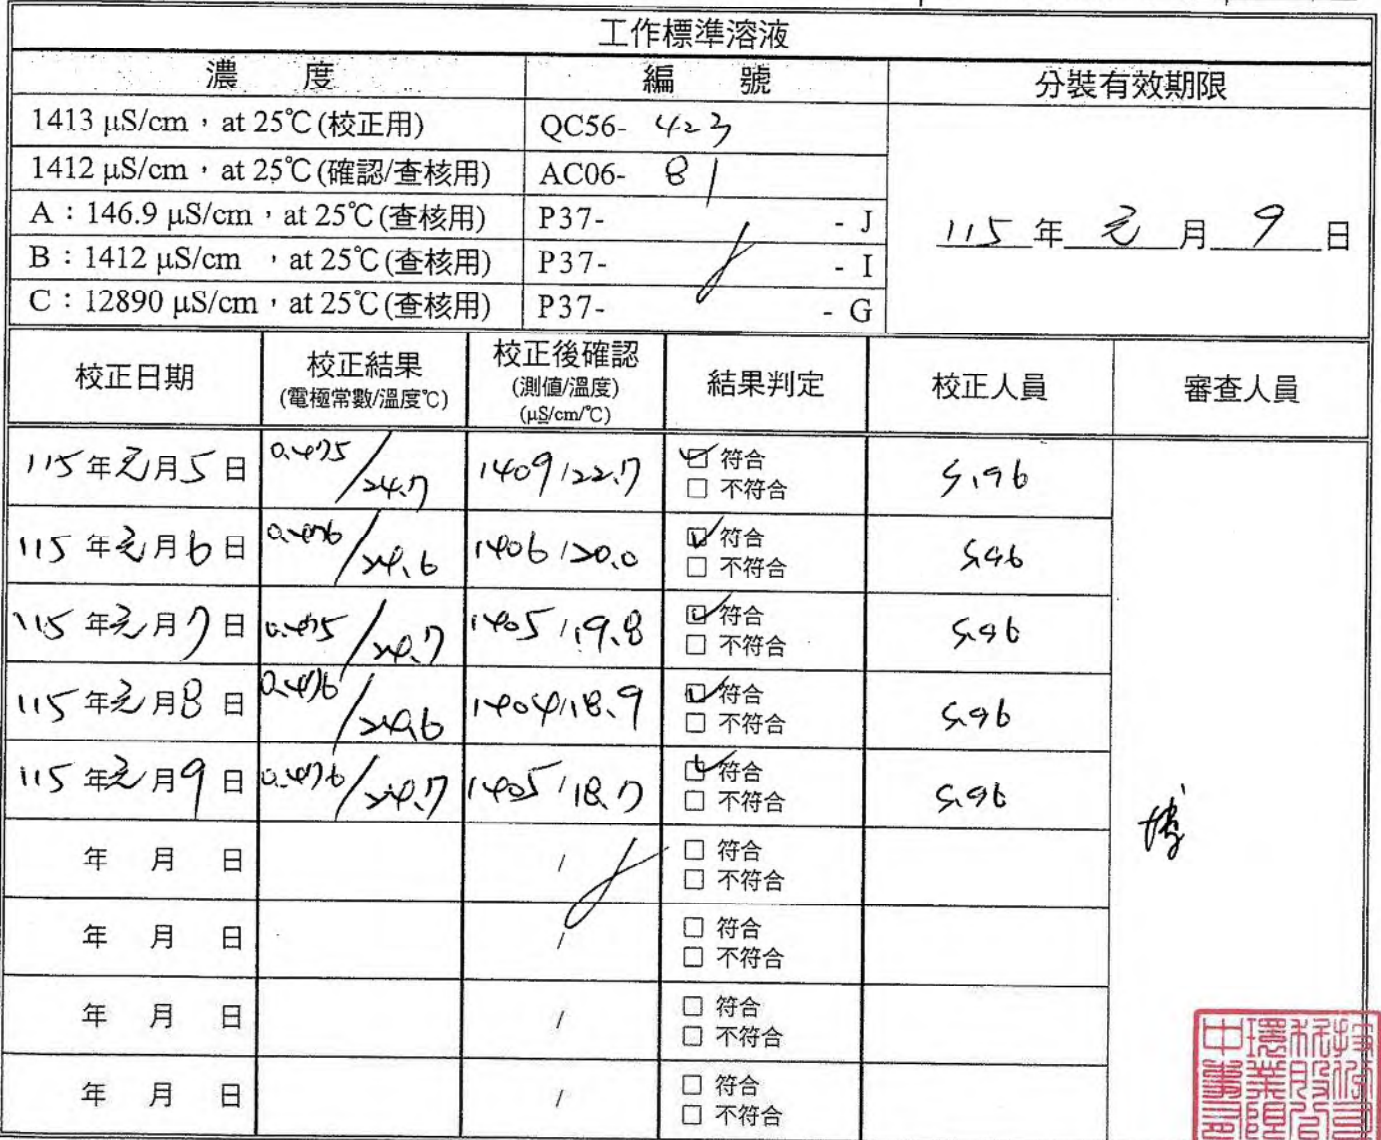 工作標準溶液
濃 度 編 號 分裝有效期限
1413 μS/cm，at 25℃(校正用) QC56- 423
1412 μS/cm，at 25℃(確認/查核用) AC06- 81
A：146.9 μS/cm，at 25℃(查核用) P37- - J
115 年 元 月 9 日
B：1412 μS/cm ，at 25℃(查核用) P37- - I
C：12890 μS/cm，at 25℃(查核用) P37- - G
校正日期 校正結果 校正後確認 結果判定 校正人員 審查人員
(電極常數/溫度℃) (測值/溫度)
(μS/cm/℃)
115年元月5日 0.475/24.7 1409/22.7 ☑ 符合
□ 不符合
115年元月6日 0.476/24.6 1406/20.0 ☑ 符合
□ 不符合
115年元月7日 0.475/24.7 1405/19.8 ☑ 符合
□ 不符合
115年元月8日 0.476/24.6 1404/18.9 ☑ 符合
□ 不符合
115年元月9日 0.476/24.7 1405/18.7 ☑ 符合
□ 不符合
年 月 日 / □ 符合
□ 不符合
年 月 日 / □ 符合
□ 不符合
年 月 日 / □ 符合
□ 不符合
年 月 日 / □ 符合
□ 不符合